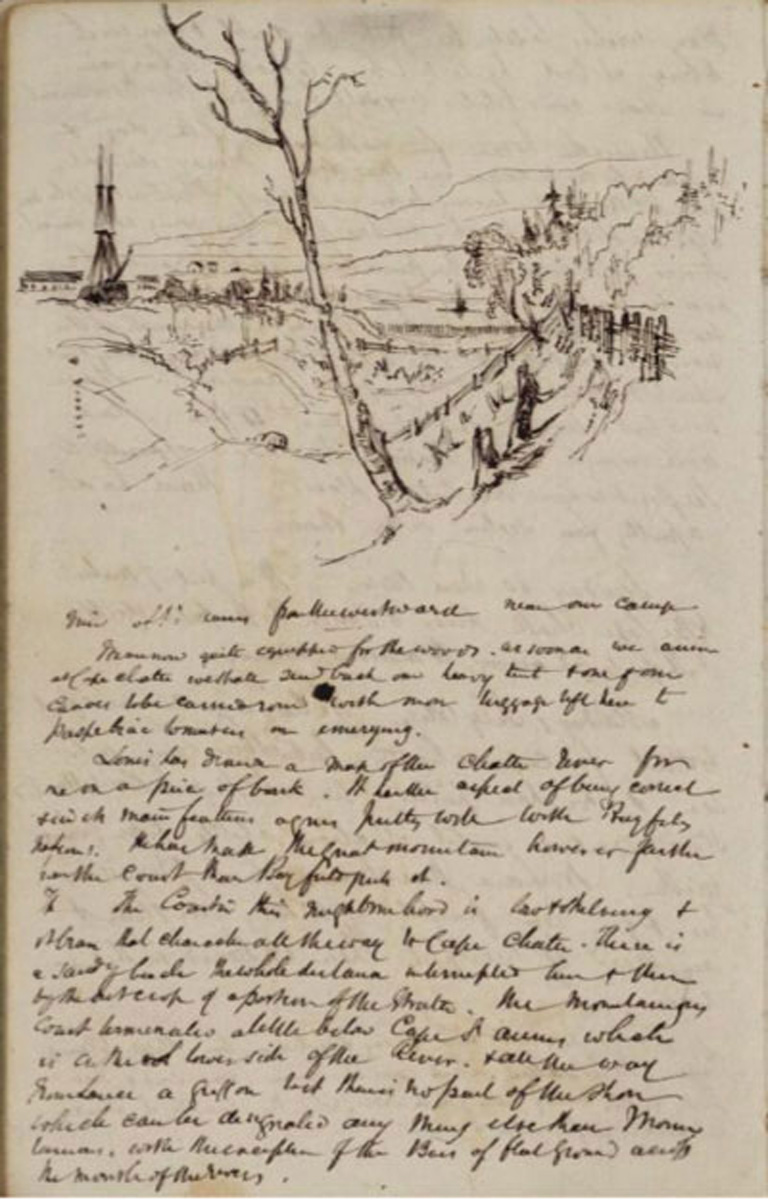 from the westward near our camp
Am now quite equipped for the woods. as soon as we arrive
at Cape Chatte we shall send back our heavy tent & one of our
Canoes to be carried round with more luggage left here to
Paspebiac to await us on emerging.
Louis has drawn a map of the Chatte River for
me on a piece of bark. It has the aspect of being correct
& in its main features agrees pretty well with Bayfield's
He has made the great mountain however farther
in the Coast than Bayfield puts it.
The Coast in this neighbourhood is low & shelving &
that character all the way to Cape Chatte. There is
a sandy beach the whole distance interrupted here & there
by the out crop of a portion of the Strata. The Mountainous
Coast terminates a little below Cape St Annes which
is on the lower side of the River. & all the way
from a Griffon last there is no part of the shore
which can be designated any thing else than Moun
tainous, with the exception of the Bits of flat ground across
the mouth of the rivers.